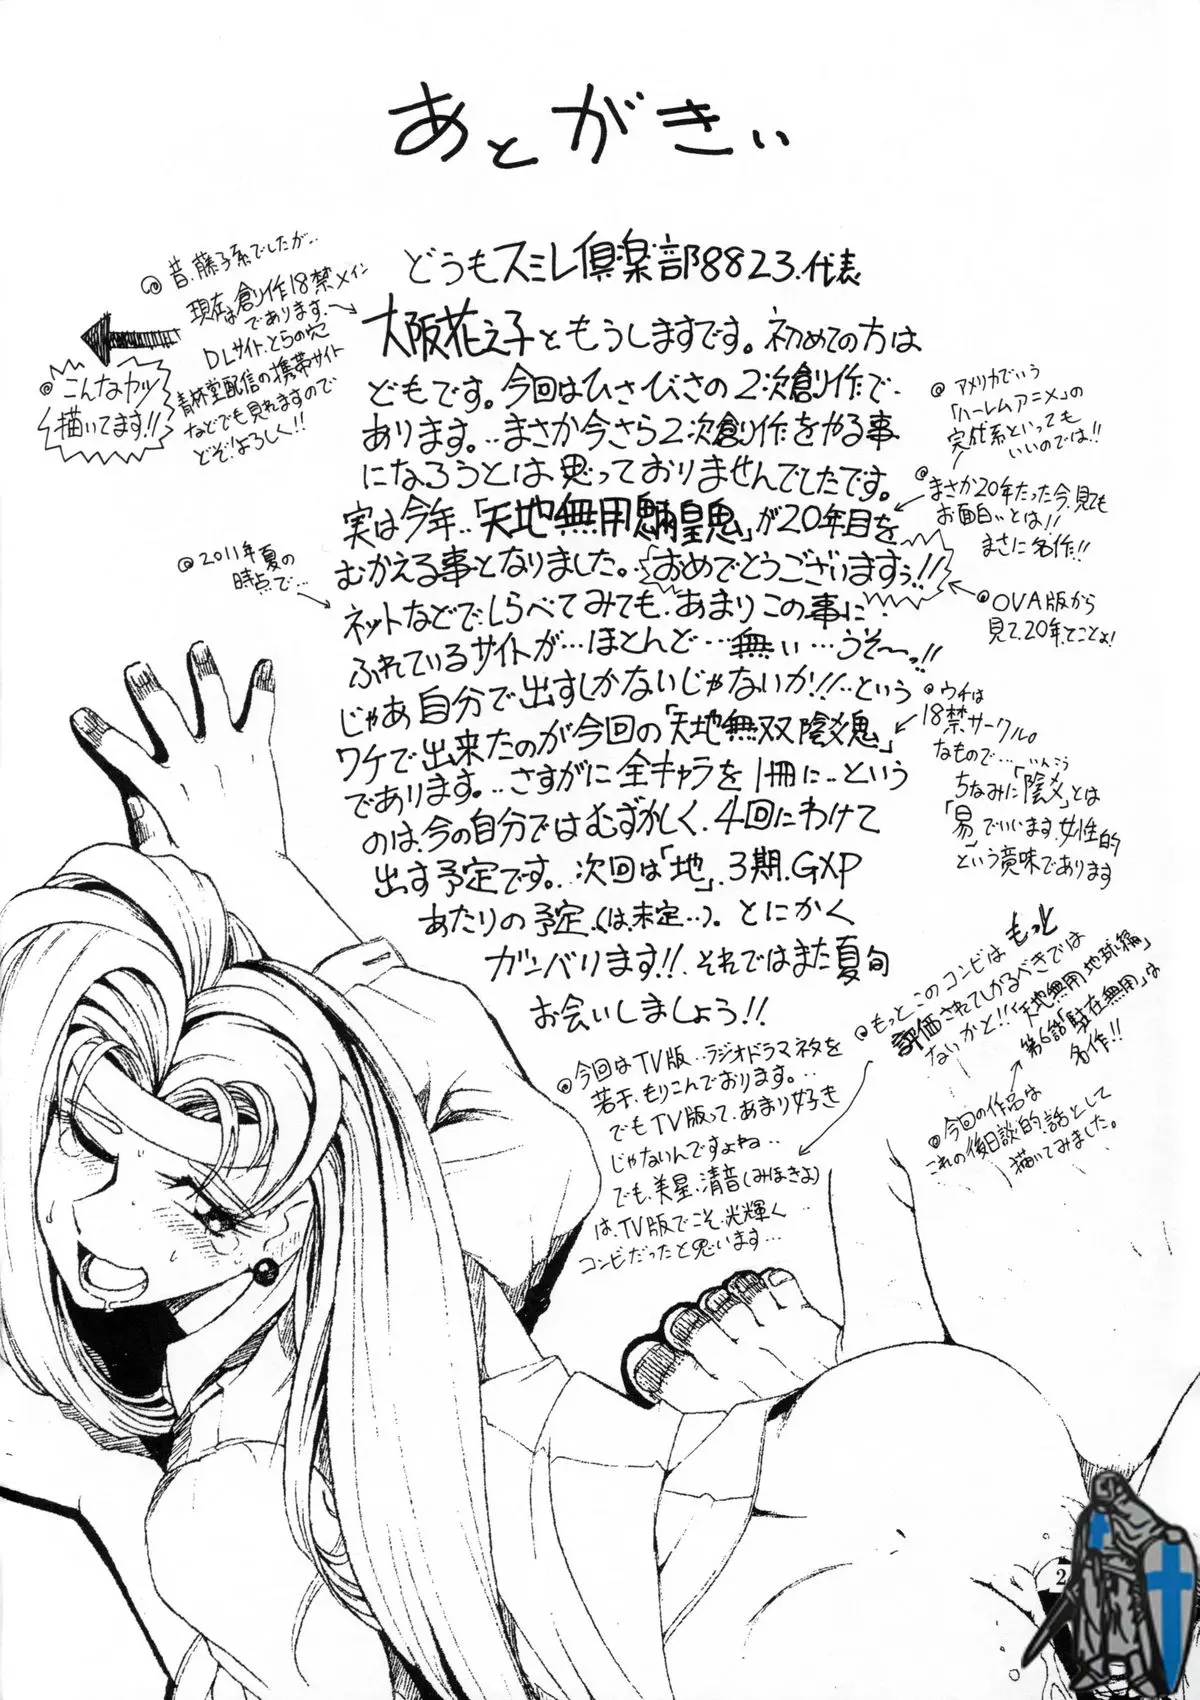 あとがきぃ
どうもスミレ倶楽部8823.代表
大阪花之子ともうしますです。初めての方は
どもです。今回はひさびさの2次創作で
あります。..まさか今さら2次創作をやる事
になろうとは思っておりませんでしたです。
実は今年..「天地無用魎皇鬼」が20年目を
むかえる事となりました。「おめでとうございますぅ!!
ネットなどでしらべてみても、あまりこの事に
ふれているサイトが…ほとんど…無い…うそ〜っ!!
じゃあ自分で出すしかないじゃないか!!..という
ワケで出来たのが今回の「天地無双陰爻鬼」
であります。..さすがに全キャラを1冊に..という
のは、今の自分ではむずかしく、4回にわけて
出す予定です。..次回は「地」、3期、GXP
あたりの予定、(は、未定..)。とにかく
ガンバリます!!、それではまた夏旬
お会いしましょう!!
◎昔、藤子系でしたが..
現在は創作18禁メイン
であります。
DLサイト、とらの穴
青林堂配信の携帯サイト
などでも見れますので
どぞ!よろしく!!
◎こんなカッ
描いてます!!
◎2011年夏の
時点で…
◎アメリカでいう
「ハーレムアニメ」の
完成系といっても
いいのでは!!
◎まさか20年たった今、見ても
お面白いとは!!
まさに名作!!
◎OVA版から
見て、20年てことよ!
◎ウチは
18禁サークル。
なもので…
いんこう
ちなみに「陰爻」とは
「易」でいいます、女性的
という意味であります
◎もっとこのコンビはもっと
評価されてしかるべきでは
ないかと!!「天地無用地球編」
第6話「駐在無用」は
名作!!
◎今回の作品は
これの後日談的話として
描いてみました。
◎今回はTV版..ラジオドラマネタを
若干、もりこんでおります。..
でもTV版って、あまり好き
じゃないんですよね..
でも、美星、清音(みほきよ)
は、TV版でこそ、光輝く
コンビだったと思います…
2